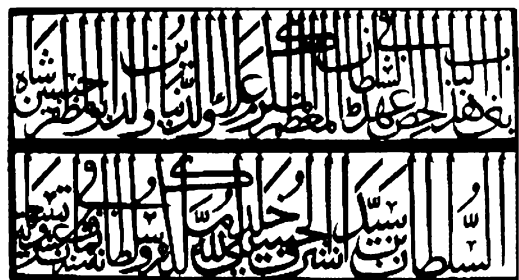 بنى هذا الباب الحصن فى عهد السلطان المعظم المكرم علاؤ الدنيا والدين ابو المظفر حسين شاه
السلطان بن سيد اشرف الحسينى خلد الله ملكه وسلطانه فى سنة